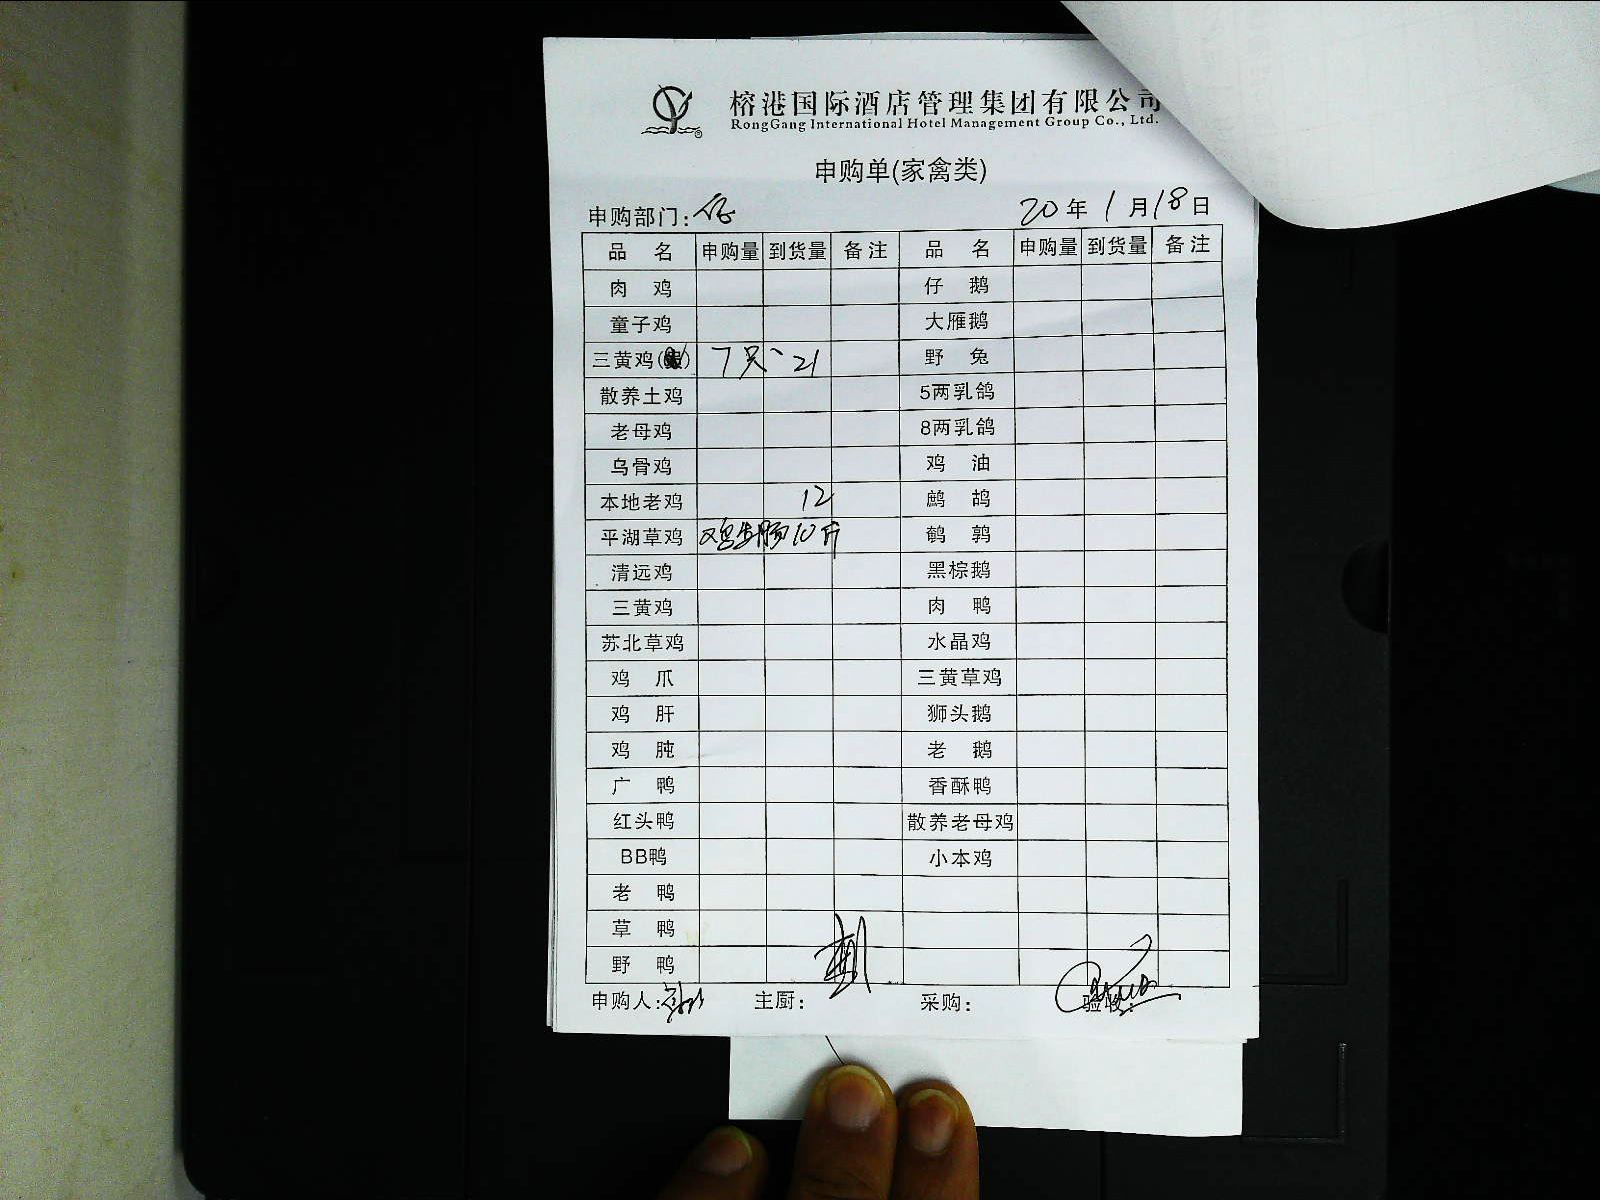 榕港国际酒店管理集团有限公司
RongGang International Hotel Management Group Co., Ltd.
申购单(家禽类)
申购部门: 20年1月18日
品名 申购量 到货量 备注 品名 申购量 到货量 备注
肉鸡 仔鹅
童子鸡 大雁鹅
三黄鸡( ) 7只 21 野兔
散养土鸡 5两乳鸽
老母鸡 8两乳鸽
乌骨鸡 鸡油
本地老鸡 12 鹧鸪
平湖草鸡 鸡生肠10斤 鹌鹑
清远鸡 黑棕鹅
三黄鸡 肉鸭
苏北草鸡 水晶鸡
鸡爪 三黄草鸡
鸡肝 狮头鹅
鸡肫 老鹅
广鸭 香酥鸭
红头鸭 散养老母鸡
BB鸭 小本鸡
老鸭
草鸭
野鸭
申购人: 主厨: 采购: 验收: